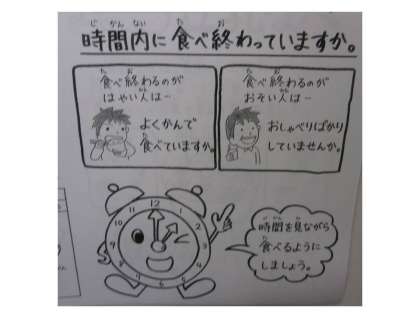 時間内に食べ終わっていますか。
食べ終わるのが
はやい人は…
よくかんで
食べていますか。
食べ終わるのが
おそい人は…
おしゃべりばかり
していませんか。
12
1
2
3
4
5
6
7
8
9
10
11
時間を見ながら
食べるように
しましょう。